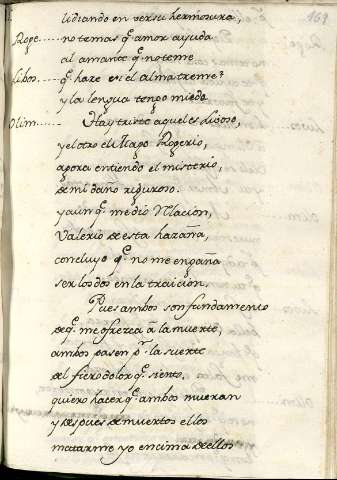 169
lidiando en ver su hermosura,
Roge..... no temas q.e amor ayuda
al amante q.e no teme
Lisos..... q.e haze en el alma treme?
y la lengua tengo muda
Olim....... Hay triste aquel es Lisoso,
y el otro el Mago Rogerio,
agora entiendo el misterio,
de mi daño riguroso.
y aunq.e me dio Relacion,
Valerio de esta hazaña,
concluyo q.e no me engaña
ser los dos en la traicion.
Pues ambos son fundamento
de q.e me ofrezca â la muerte,
ambos pasen p.r la suerte
del fiero dolor q.e siento.
quiero hacer q.e ambos mueran
y despues de muertos ellos
matarme yo encima de ellos